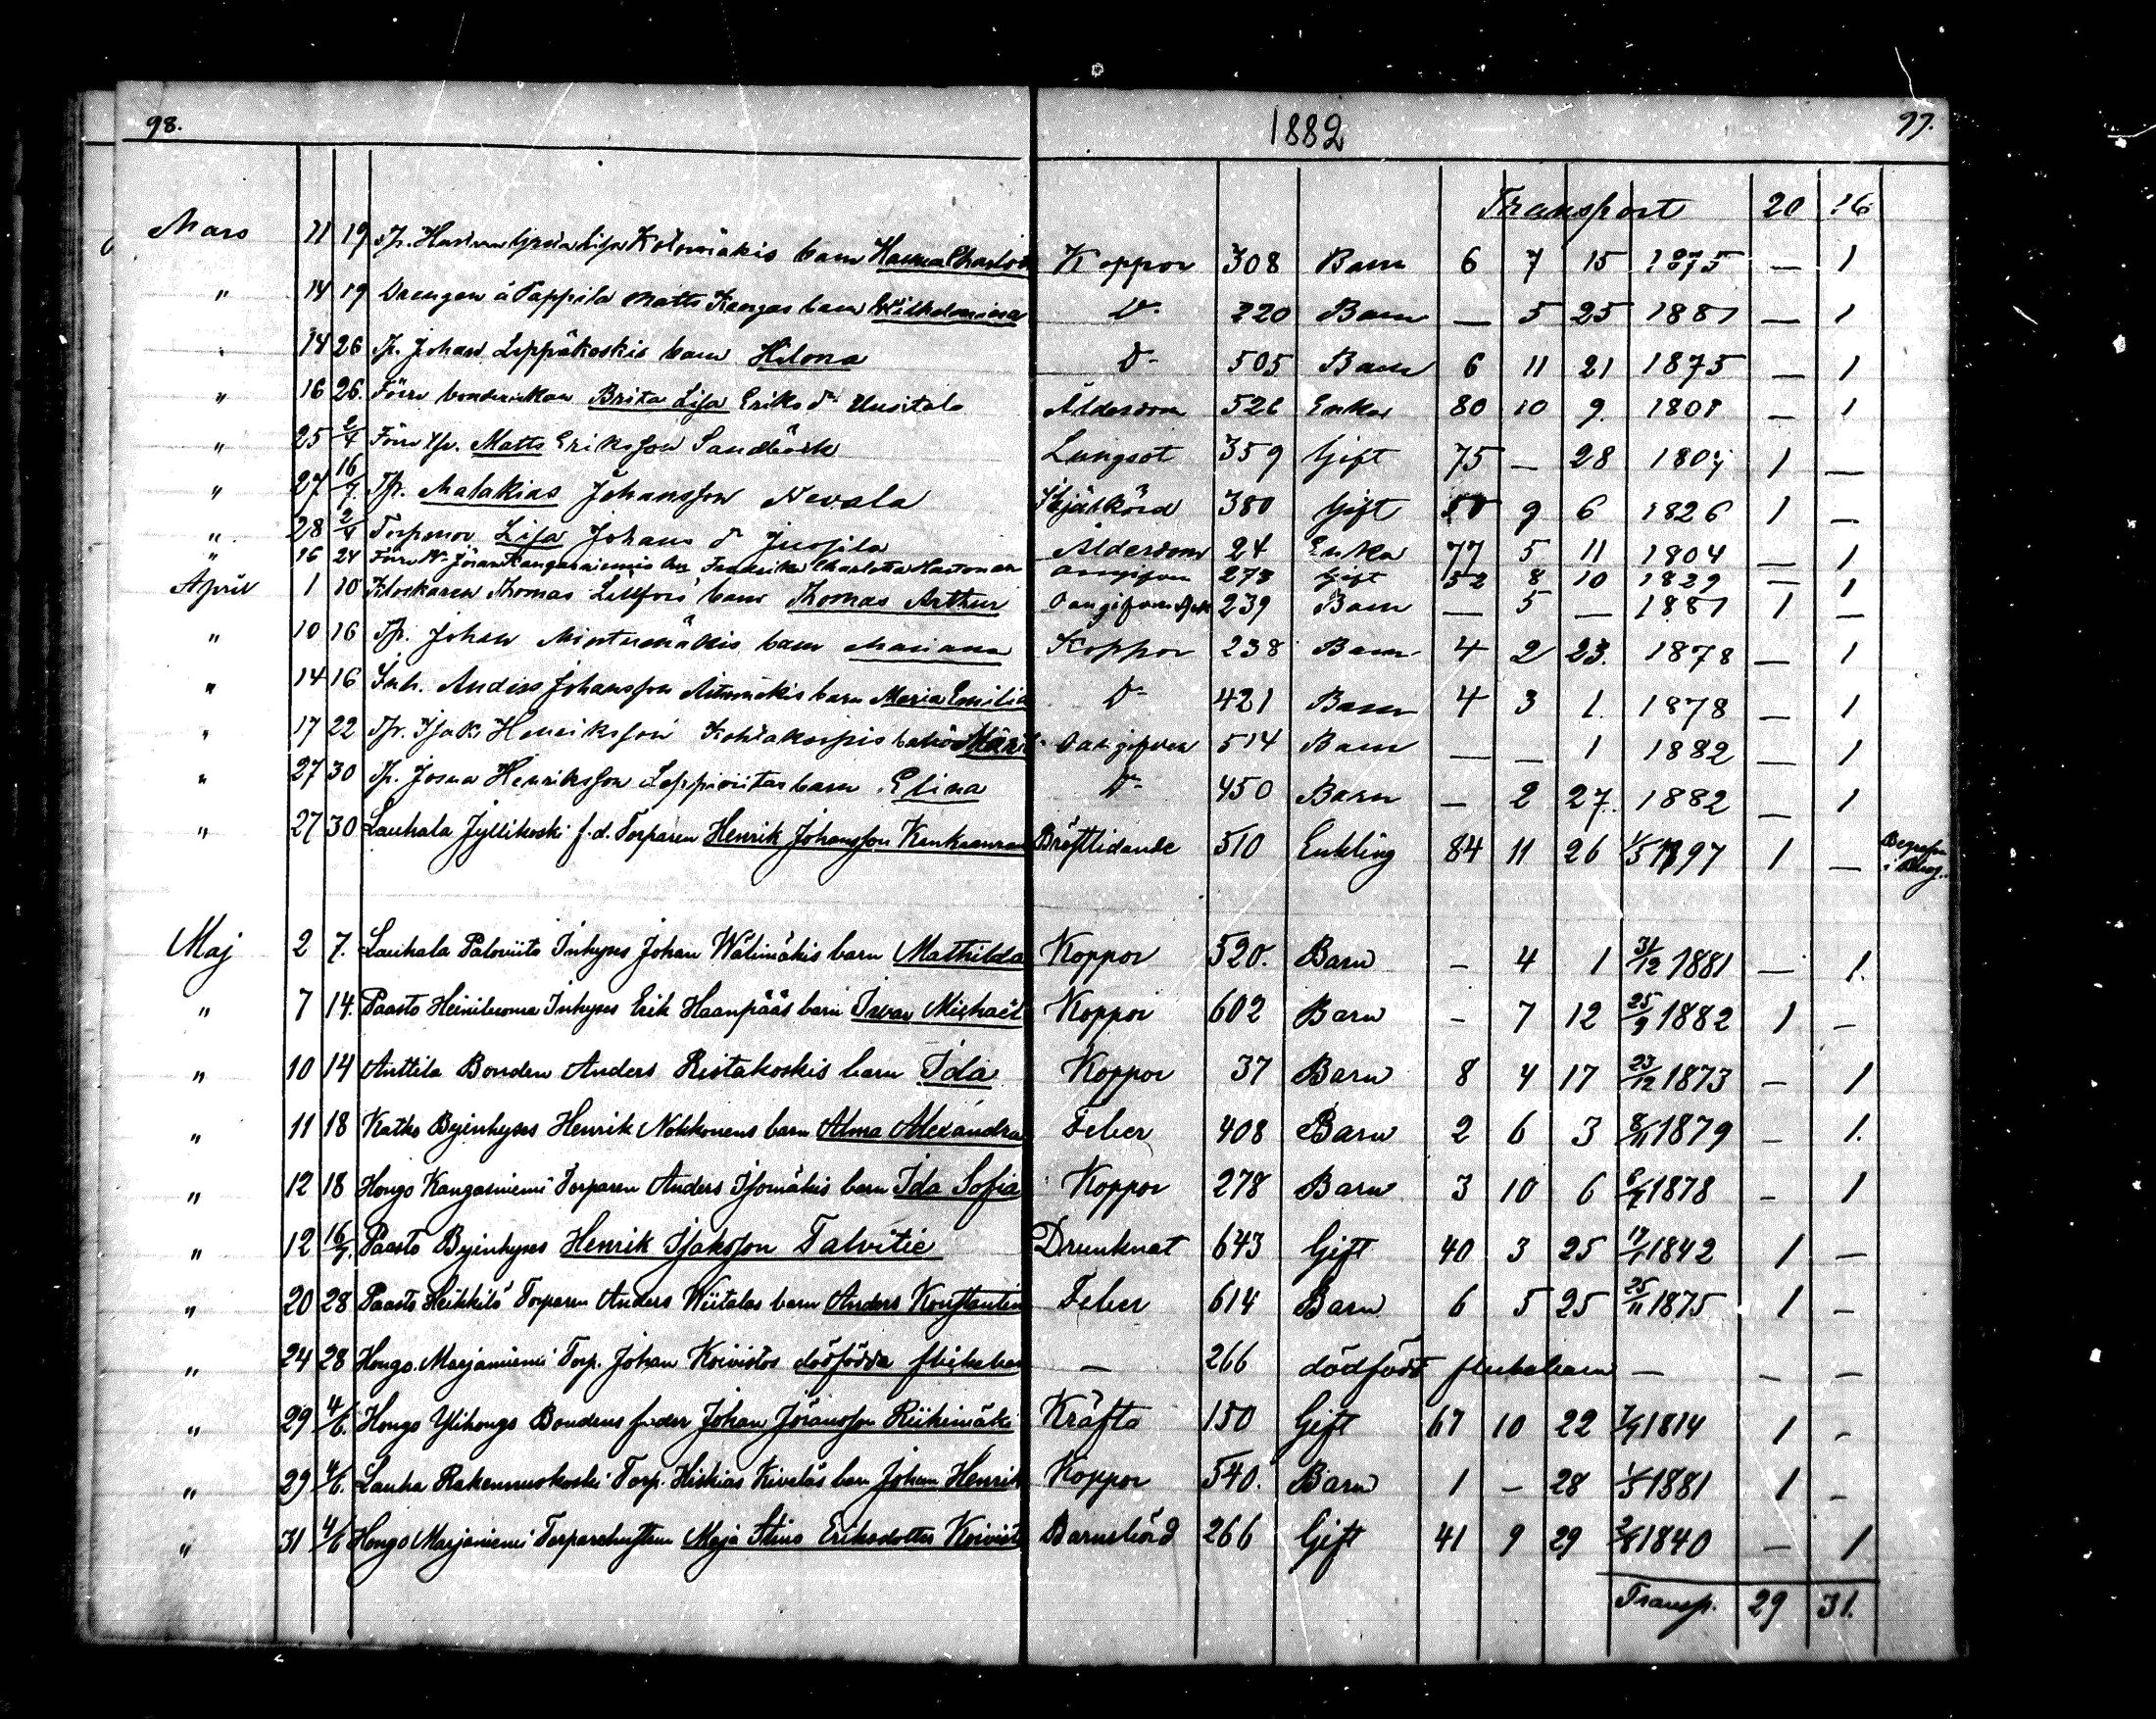 98. 1882 99.
Transport 20 16
Mars 11 19 Tp. Lisa Kotomäkis barn Hanna Charlot Koppor 308 Barn 6 7 15 1875 — 1
" 14 19 Drengen å Pappila Matts Kangas barn Wilhelmina D:o 220 Barn — 5 25 1881 — 1
" 14 26 Tp. Johan Leppäkoskis barn Hilona D:o 505 Barn 6 11 21 1875 — 1
" 16 26. Förr bondenkan Brita Lisa Eriks dr Uusitalo Ålderdom 526 Enka 80 10 9. 1801 — 1
" 25 2/4 Förr Tp. Matts Eriksson Sandbäck Lungsot 359 Gift 75 — 28 1807 1 —
" 27 16/7. Tp. Malakias Johansson Nevala 380 Gift 50 9 6 1826 1 —
" 28 2/4 Torpenor Lisa Johans dr Ålderdom 24 Enka 77 5 11 1804 — 1
" 16 24 Förre Kangasniemis Fredrika Charlotta Oangifven 278 Gift 52 8 10 1829 — 1
April 1 10 Klockaren Thomas Lillfors barn Thomas Arthur Oangifven 239 Barn — 5 — 1881 1 —
" 10 16 Tp. Johan Mintumäkis barn Mariana Koppor 238 Barn 4 2 23. 1878 — 1
" 14 16 Inh. Anders Johansson barn Maria Emilia D:o 421 Barn 4 3 1. 1878 — 1
" 17 22 Tp. Isak Henriksson Kohtakorpis Oangifven 514 Barn — — 1 1882 — 1
" 27 30 Tp. Josua Henriksson Leppiviitas barn Elina D:o 450 Barn — 2 27. 1882 — 1
" 27 30 Lauhala Jyllikoski f.d. Torparen Henrik Johansson Bröstlidande 510 Enkling 84 11 26 1/5 1797 1 — Begrafen i
Maj 2 7. Lauhala Paloviita Inhyses Johan Wälimäkis barn Mathilda Koppor 520. Barn – 4 1 31/12 1881 — 1.
" 7 14. Paasto Heiniluoma Inhyses Erik Haanpääs barn Iivar Michaël Koppor 602 Barn – 7 12 25/9 1882 1 –
" 10 14 Anttila Bonden Anders Ristakoskis barn Ida Koppor 37 Barn 8 4 17 23/12 1873 – 1
" 11 18 Katko Byinhyses Henrik Nokkonens barn Alma Alexandra Feber 408 Barn 2 6 3 8/11 1879 – 1.
" 12 18 Hongo Kangasniemi Torparen Anders Isomäkis barn Ida Sofia Koppor 278 Barn 3 10 6 6/7 1878 – 1
" 12 16/7. Paasto Byinhyses Henrik Isaksson Talvitie Drunknat 643 Gift 40 3 25 17/1 1842 1 –
" 20 28 Paasto Heikkilä Torparen Anders Wiitalas barn Anders Konstantin Feber 614 Barn 6 5 25 25/11 1875 1 –
" 24 28 Hongo Marjaniemi Torp. Johan Koivistos dödfödda flickebar — 266 dödfödt flickebarn — – –
" 29 4/6. Hongo Ylihongo Bondens fader Johan Jöransson Riihimäki Kräfta 150 Gift 67 10 22 7/7 1814 1 –
" 29 4/6. Lauha Rakennuskoski Torp. Hiskias Kiveläs barn Johan Henrik Koppor 540. Barn 1 – 28 1/5 1881 1 –
" 31 4/6 Hongo Marjaniemi Torparehustrun Maja Stina Eriksdotter Koivisto Barnsbörd 266 Gift 41 9 29 2/8 1840 – 1
Transp. 29 31.